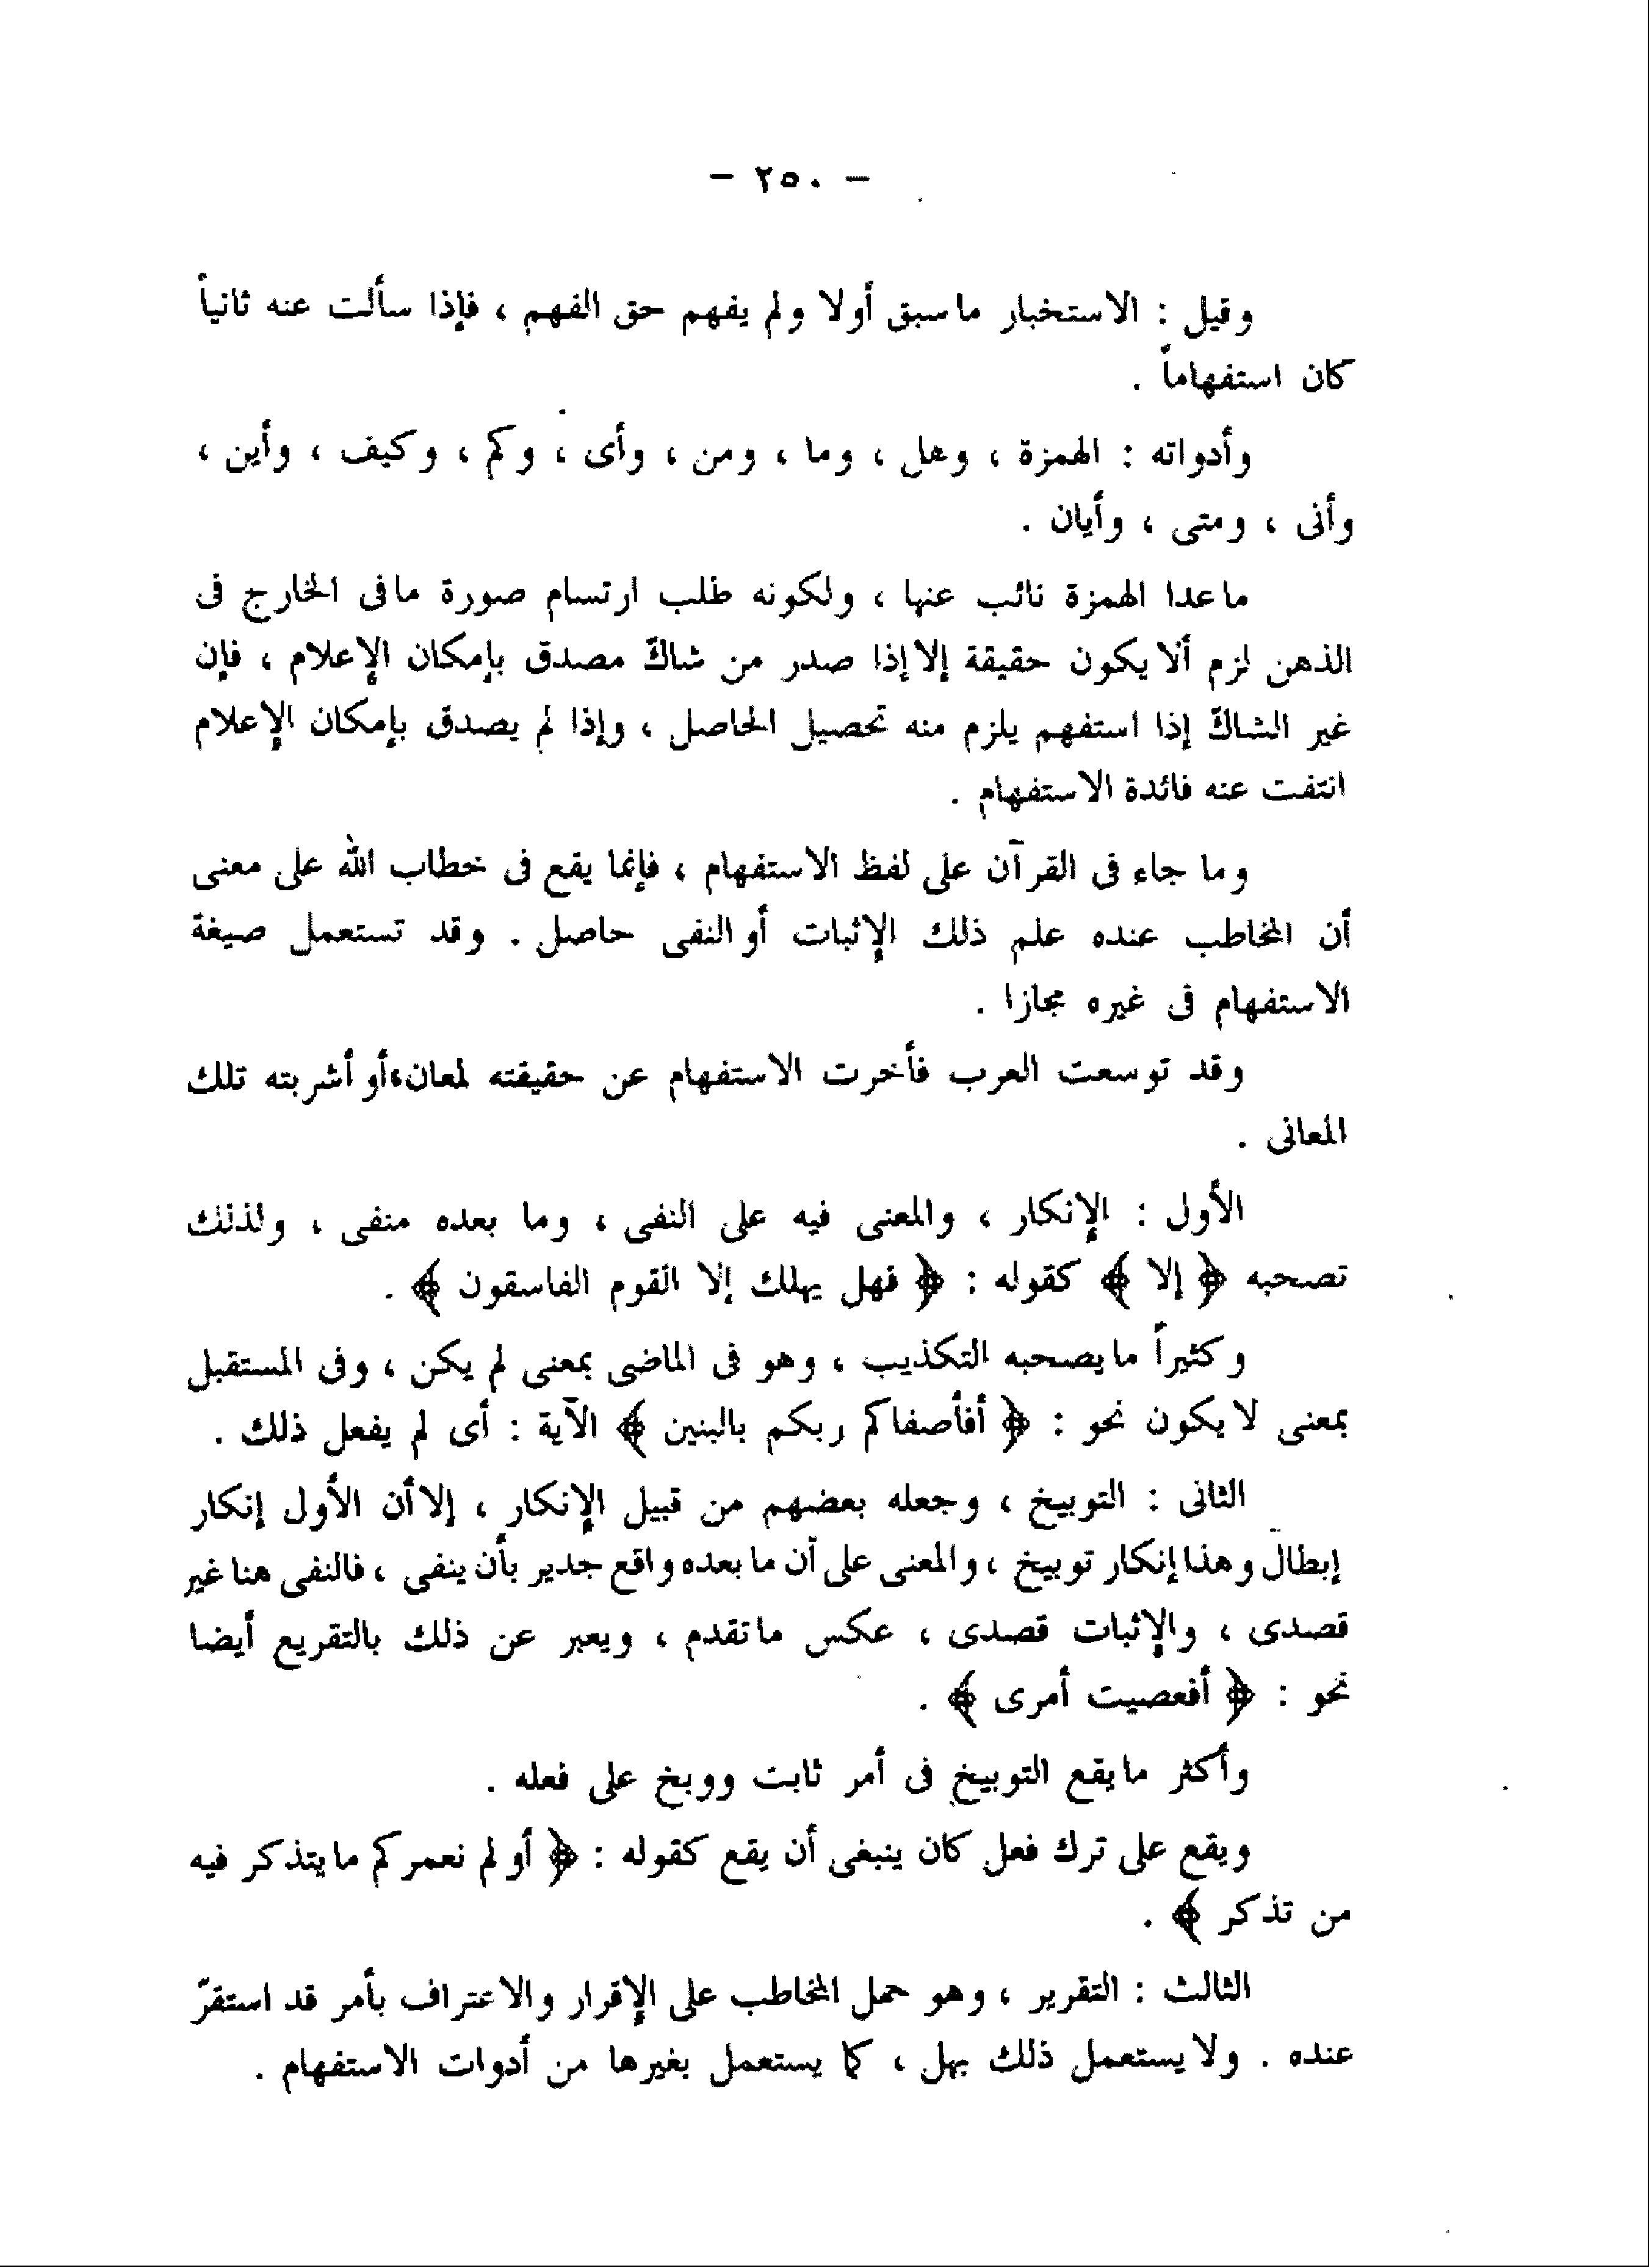 - ٢٥٠ -
وقيل : الاستخبار ماسبق أولا ولم يفهم حق الفهم ، فإذا سألت عنه ثانياً
كان استفهاماً .
وأدواته : الهمزة ، وهل ، وما ، ومن ، وأى ، وكم ، وكيف ، وأين ،
وأنى ، ومتى ، وأيان .
ماعدا الهمزة نائب عنها ، ولكونه طلب ارتسام صورة مافى الخارج فى
الذهن لزم ألا يكون حقيقة إلا إذا صدر من شاكّ مصدق بإمكان الإعلام ، فإن
غير الشاكّ إذا استفهم يلزم منه تحصيل الحاصل ، وإذا لم يصدق بإمكان الإعلام
انتفت عنه فائدة الاستفهام .
وما جاء فى القرآن على لفظ الاستفهام ، فإنما يقع فى خطاب الله على معنى
أن المخاطب عنده علم ذلك الإثبات أو النفى حاصل . وقد تستعمل صيغة
الاستفهام فى غيره مجازا .
وقد توسعت العرب فأخرت الاستفهام عن حقيقته لمعان، أو أشربته تلك
المعانى .
الأول : الإنكار ، والمعنى فيه على النفى ، وما بعده منفى ، ولذلك
تصحبه ﴿ إلا ﴾ كقوله : ﴿ فهل يهلك إلا القوم الفاسقون ﴾ .
وكثيراً مايصحبه التكذيب ، وهو فى الماضى بمعنى لم يكن ، وفى المستقبل
بمعنى لا يكون نحو : ﴿ أفأصفاكم ربكم بالبنين ﴾ الآية : أى لم يفعل ذلك .
الثانى : التوبيخ ، وجعله بعضهم من قبيل الإنكار ، إلا أن الأول إنكار
إبطال وهذا إنكار توبيخ ، والمعنى على أن ما بعده واقع جدير بأن ينفى ، فالنفى هنا غير
قصدى ، والإثبات قصدى ، عكس ماتقدم ، ويعبر عن ذلك بالتقريع أيضا
نحو : ﴿ أفعصيت أمرى ﴾ .
وأكثر مايقع التوبيخ فى أمر ثابت ووبخ على فعله .
ويقع على ترك فعل كان ينبغى أن يقع كقوله : ﴿ أو لم نعمركم مايتذكر فيه
من تذكر ﴾ .
الثالث : التقرير ، وهو حمل المخاطب على الإقرار والاعتراف بأمر قد استقرّ
عنده . ولا يستعمل ذلك بهل ، كما يستعمل بغيرها من أدوات الاستفهام .